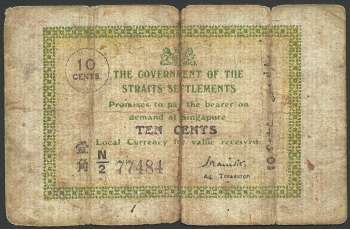 10
CENTS.
THE GOVERNMENT OF THE
STRAITS SETTLEMENTS
Promises to pay the bearer on
demand at Singapore
TEN CENTS
Local Currency for value received.
壹
角
N/2 77484
Ag Treasurer
10